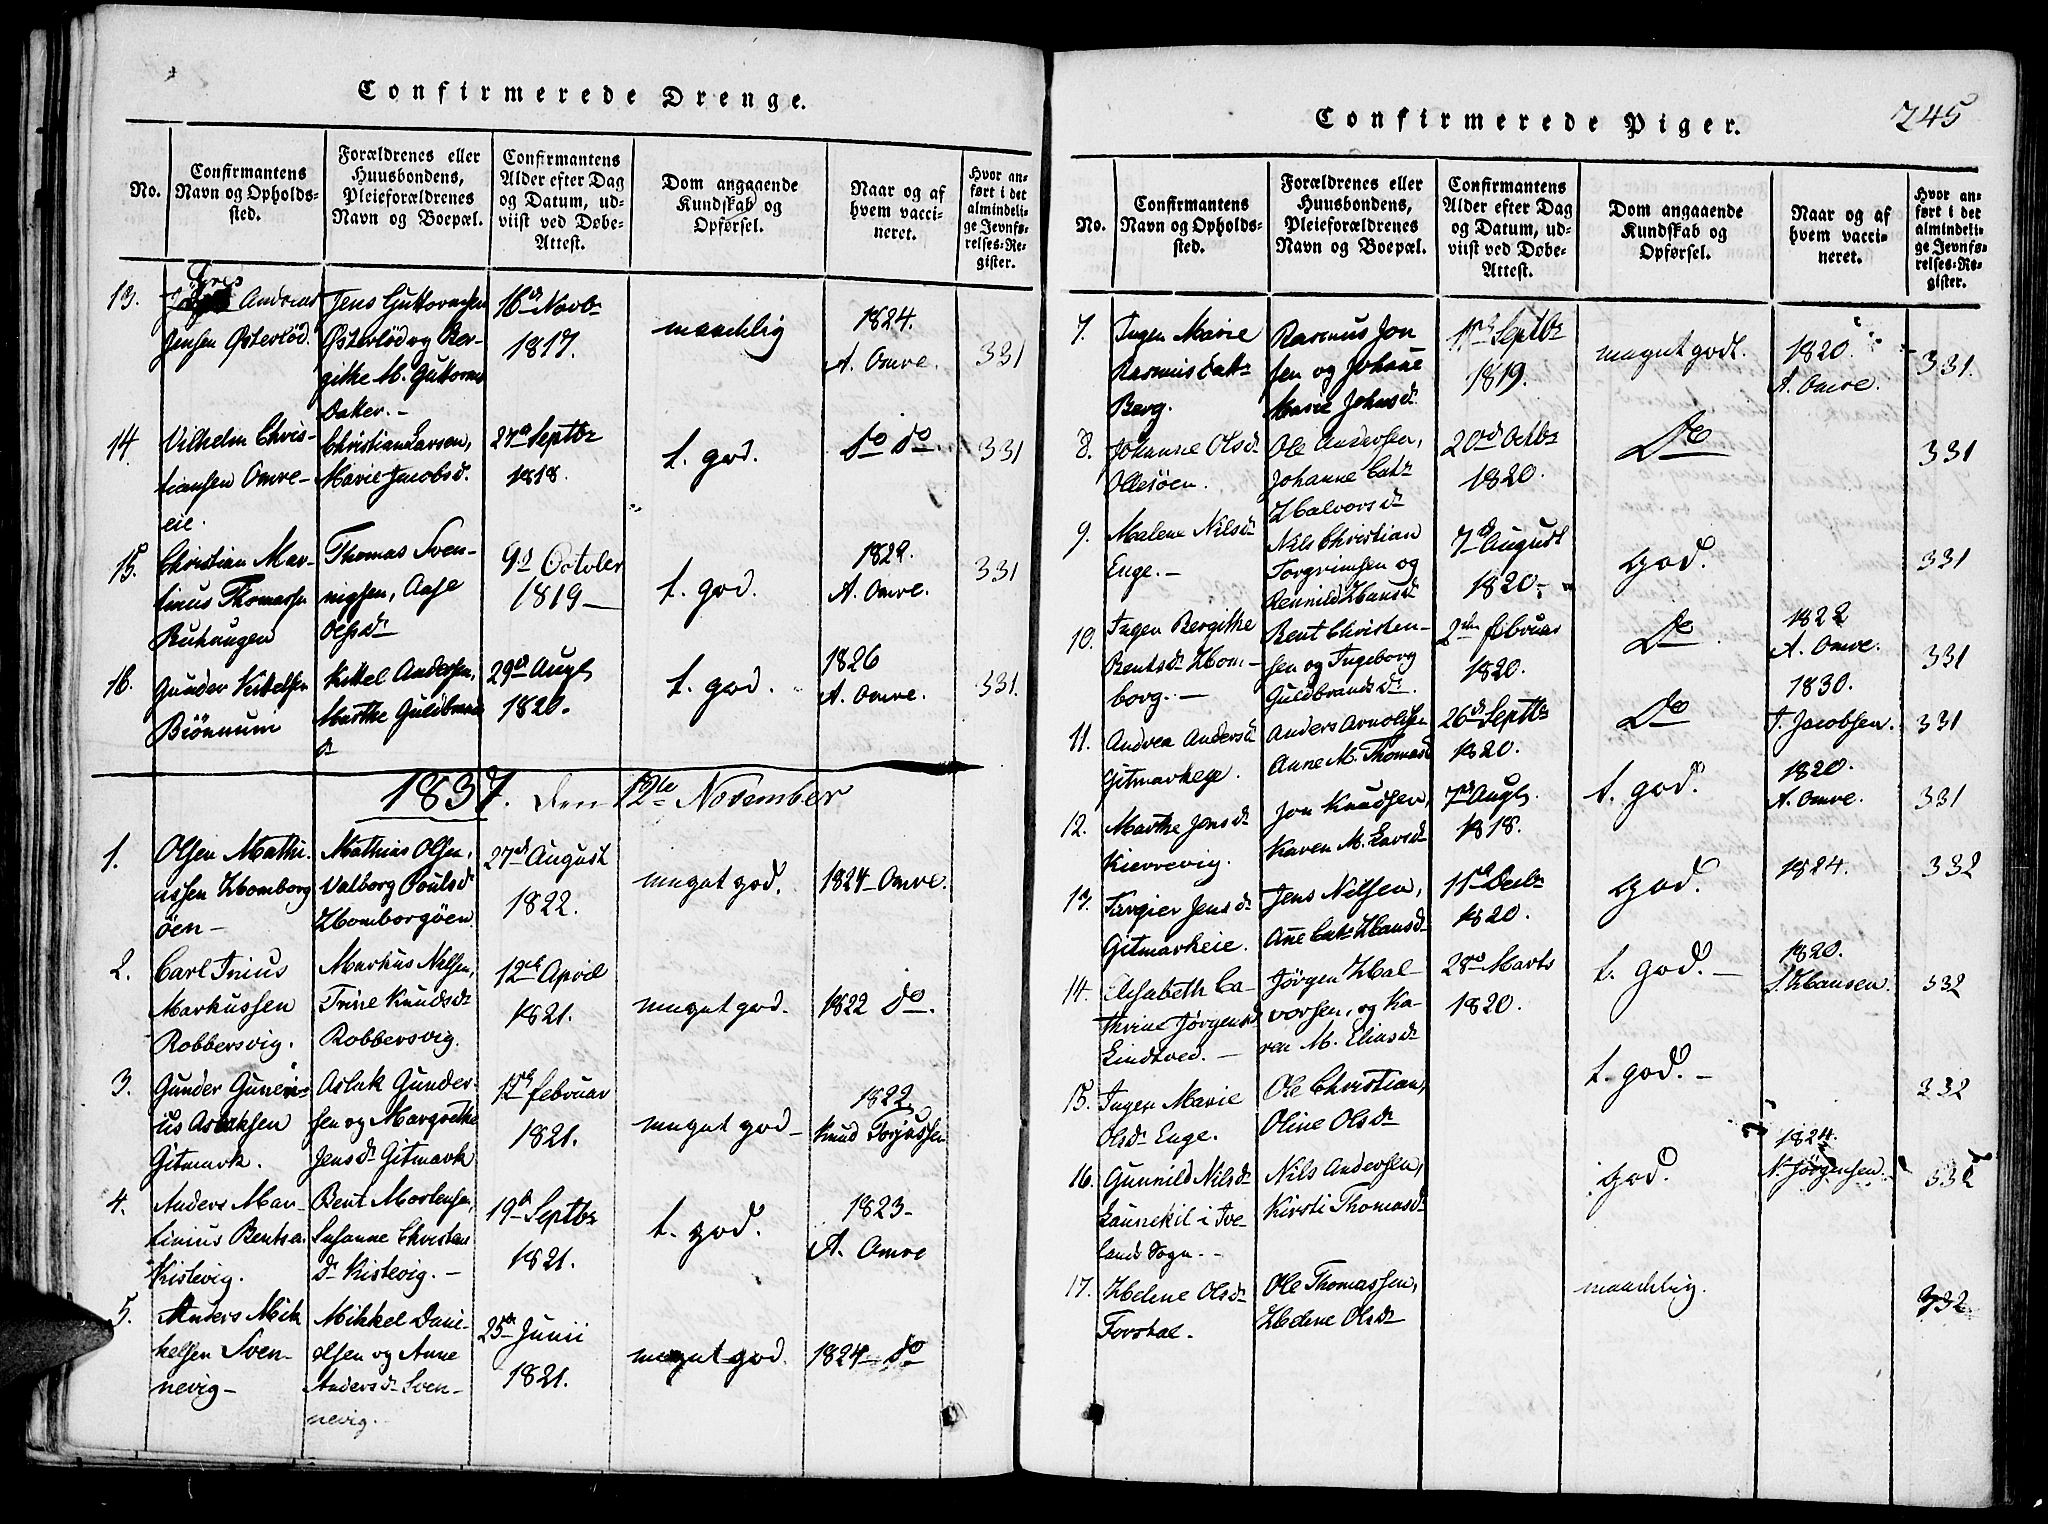 Confirmerede Drenge.
No.
Confirmantens
Navn og Opholds-
sted.
Forældrenes eller
Huusbondens,
Pleieforældrenes
Navn og Boepæl.
Confirmantens
Alder efter Dag
og Datum, ud-
viist ved Døbe-
Attest.
Dom angaaende
Kundskab og
Opførsel.
Naar og af
hvem vacci-
neret.
Hvor an-
ført i det
almindeli-
ge Jevnfø-
relses-Re-
gister.
13.
Andreas
Jensen Østerlød.
Jens Guttormsen
Østerlød og Ber-
githe M. Guttorms
16d Novbr
1817.
maadelig
1824.
A. Omre.
331
14.
Vilhelm Chris-
tiansen Omre-
eie.
Christian Larsen,
Marie Jacobsd.
27d Septbr
1818.
t. god.
do do
331
15.
Christian Mar-
tinus Thomassen
Ruhaugen
Thomas Sven-
nigsen, Aase
Olsdr
9d October
1819
t. god.
1822.
A. Omre.
331
16.
Gunder Kittelsen
Biönnum
Kittel Andersen,
Marthe Guldbrands
dr
29d Augs
1820.
t. god.
1826
A. Omre.
331.
1837. den 12te November
1.
Olsen Mathi-
assen Homborg
öen
Mathias Olsen,
Valborg Poulsd
Homborgöen
27d August
1822.
meget god.
1824 Omre.
2.
Carl Inius
Markussen
Robbersvig.
Markus Nilsen,
Trine Knudsdr
Robbersvig.
12d April
1821.
meget god.
1822 do.
3.
Gunder Guneri-
us Aslaksen
Gitmark.
Aslak Gunder-
sen og Margrethe
Jensdr Gitmark
februar
1821.
meget god
1822
Knud Torjussen
4.
Anders Mar-
tinius Bentsen
Kistevig.
Bent Mortensen,
Susanne Christens
dr Kistevig.
19d Septbr
1821.
t. god.
1823-
A. Omre
5.
Anders Mik
kelsen Sven-
nevig-
Mikkel Dani-
elsen og Anne
Andersdr Sven-
nevig.
25d Junii
1821.
meget god.
1824 do
Confirmerede Piger.
245
No.
Confirmantens
Navn og Opholds-
sted.
Forældrenes eller
Huusbondens,
Pleieforældrenes
Navn og Boepæl.
Confirmantens
Alder efter Dag
og Datum, ud-
viist ved Døbe-
Attest.
Dom angaaende
Kundskab og
Opførsel.
Naar og af
hvem vacci-
neret.
Hvor an-
ført i det
almindeli-
ge Jevnfø-
relses-Re-
gister.
7.
Ingen Marie
Rasmusdatr
Berg.
Rasmus Jon
sen og Johane
Marie Johnsd.
Septbr
1819.
meget godt.
1820.
A. Omre.
331.
8.
Johanne Olsd
Ollesöen.
Ole Andersen,
Johanne Catr
Halvorsdr
20d Octbr
1820.
Do
331
9.
Malene Nilsdr
Enge.-
Nils Christian
Torgrimsen og
Hansd
7d August
1820.
god.
331
10.
Ingen Bergithe
Bentsdr Hom-
borg.-
Bent Christen-
sen og Ingeborg
Guldbrandsdr.
2den februar
1820.
Do.
1822
A. Omre.
331
11.
Andrea Andersd
Gitmarkeye.
Anders Arnoldsen
Anne M. Thomasd
26d Septbr
1820.
Do
1830.
T. Jacobsen.
331
12.
Marthe Jonsdr
Kierrevig.
Jon Knudsen,
Karen M. Larsdr
7d Augs.
1818.
t. god.
1820.
A. Omre.
331
13.
Targier Jensdr
Gitmarkeie.
Jens Nilsen,
Ane Catr Hansdr
11d Decbr
1820.
god.
1824.
332
14.
Elisabeth Ca-
thrine Jörgensd
Lindtved.-
Jörgen Hal-
vorsen, og Ka-
ren M. Eliasdr
28d Marts
1820.
t. god.-
1820.
S. Hansen.
332
15.
Ingen Marie
Olsdr Enge.
Ole Christian,
Oline Olsdr
t. god.-
332
16.
Gunnild Nilsdr
Launekil i Ive-
lands Sogn.-
Nils Andersen,
Kirsti Thomasdr
god.
1824.
N. Jörgensen.
332
17.
Helene Olsdr
Torstal.
Ole Thomassen,
Helene Olsdr
maadelig.
332